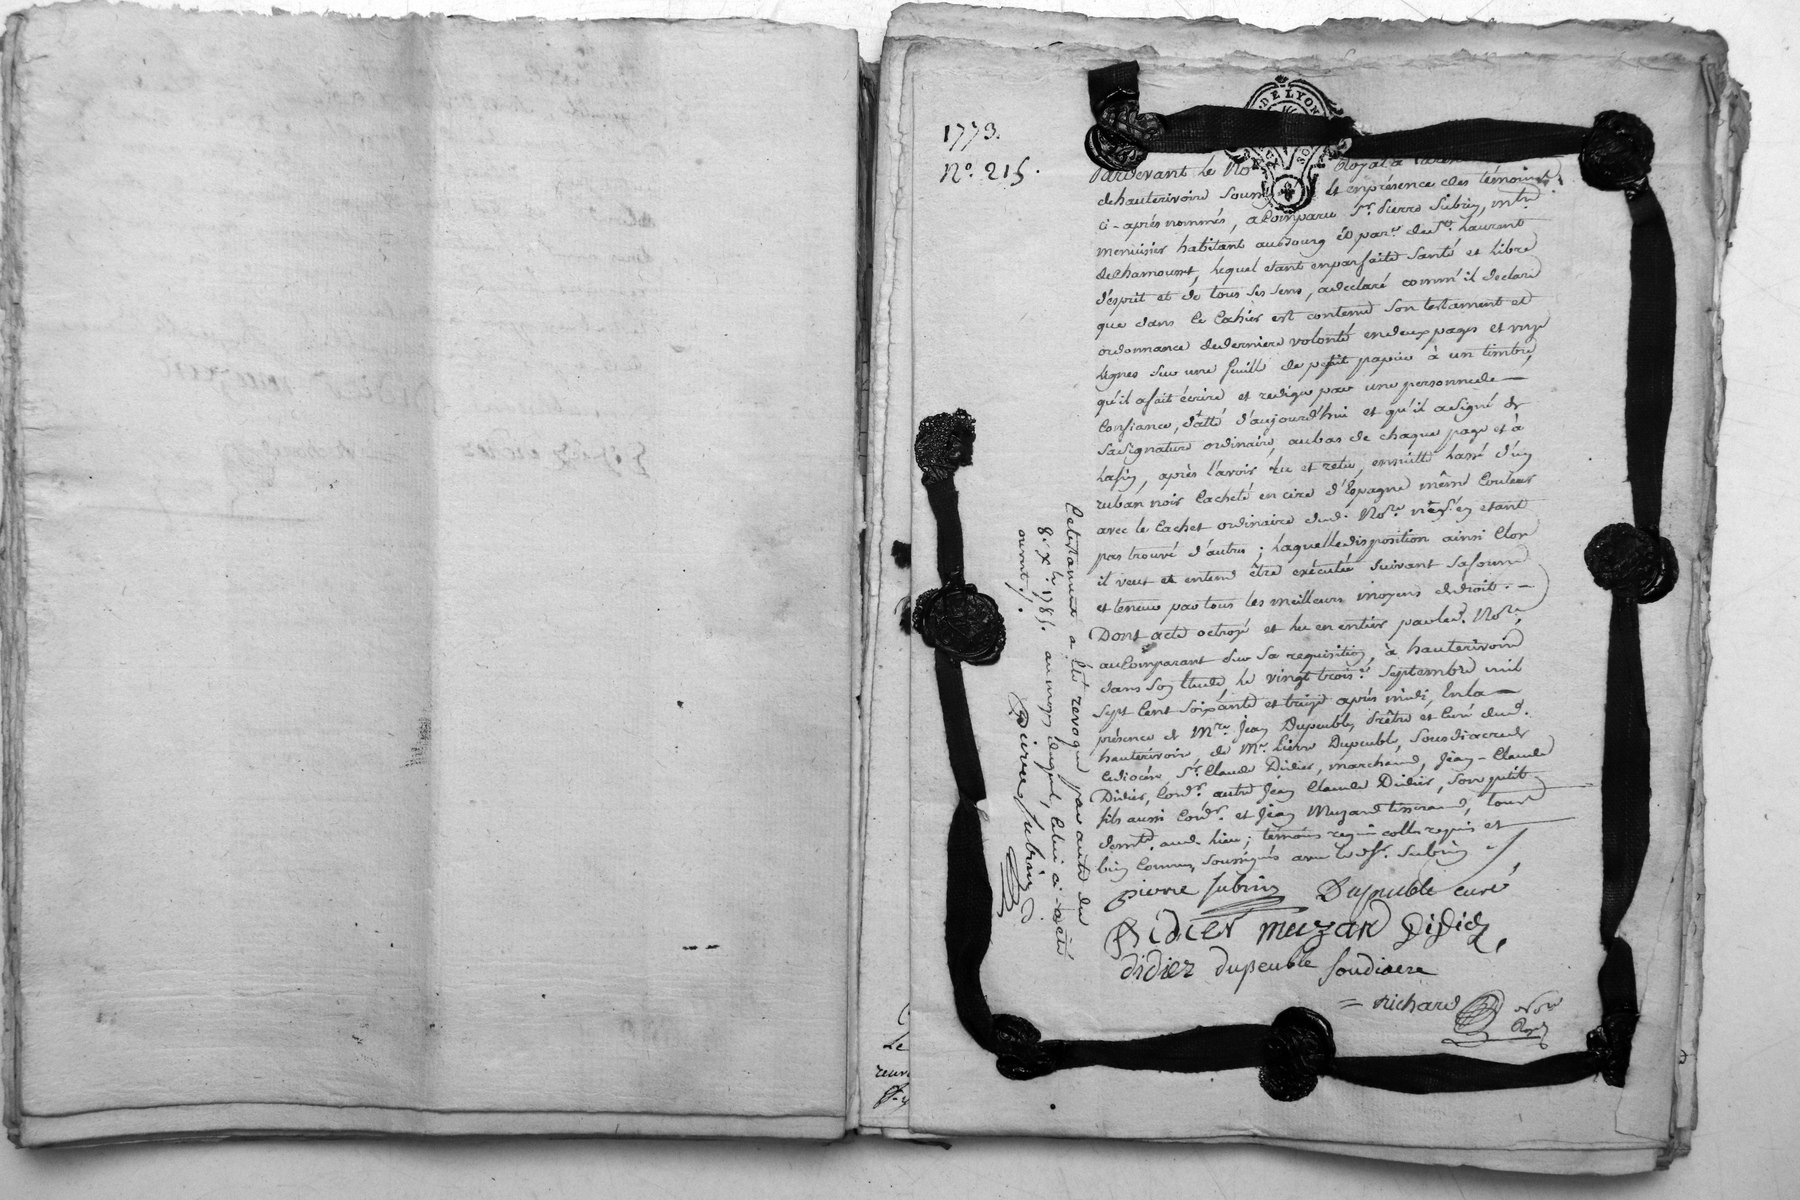 1773.
N.º 215.
DE LYON
Pardevant le No Royal à
de hauterivoire sous et en présence des témoins
ci-après nommés, a Comparu Sr. Pierre Subrin, mtre
menuisier habitant au Bourg et parse. de St. Laurent
de Chamousset, lequel etant en parfaite Santé et libre
d'esprit et de tous ses sens, a declaré comm'il declare
que dans ce Cahier est contenu son testament et
ordonnance de derniere volonté en deux pages et
lignes sur une feuille de petit papier à un timbre,
qu'il a fait écrire et rediger par une personne de
Confiance, datté d'aujourd'hui et qu'il a signé de
sa signature ordinaire, au bas de chaque page et à
la fin, après l'avoir lu et relu, ensuitte lassé d'un
ruban noir Cacheté en cire d'Espagne même Couleur
avec le Cachet ordinaire dud. Nore. n'en etant
pas trouvé d'autre ; laquelle disposition ainsi Close
il veut et entend être executée suivant sa forme
et teneur par tous les meilleurs moyens de droit. —
Dont acte octroyé et lu en entier par led. Nore,
au Comparant sur sa requisition, à hauterivoire
dans son Etude le vingt trois.e Septembre mil
sept Cent soixante et treize après midi, En la —
présence de Mre. Jean Dupeuble, Prêtre et Curé dud.
hauterivoire, de Mr. Pierre Dupeuble, Sousdiacre de
ce diocèse, Sr. Claude Didier, marchand, Jean-Claude
Didier, Cordr. autre Jean Claude Didier, son petit
fils aussi Cordr. et Jean Muzard tisserand, tous
demts. aud. lieu ; témoins requis et
bien Connus, soussignés avec led. Sr. Subrin
pierre subrin Dupeuble curé
Didier muzar Didier
didier dupeuble soudiacre
= richard Nore
Royal
Ce testament a été revoqué par acte du
8.e Xbre. 1785. au moyen duquel, Celui ci a été
ouvert ./.
Pierre Subrin